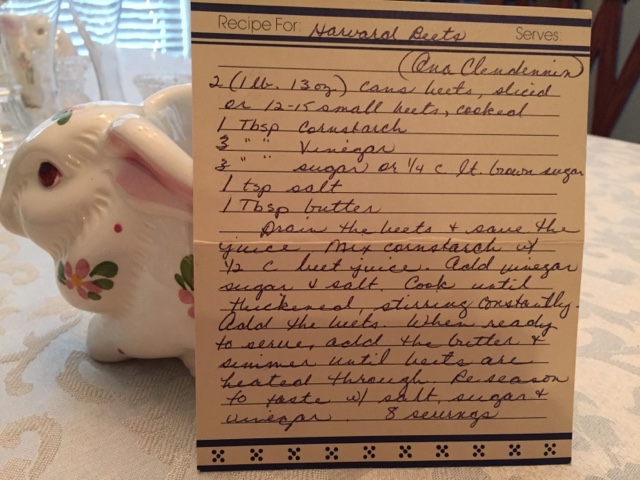 Recipe For: Harvard Beets Serves:
(Ona Clendennin)
2 (1 lb. 13 oz) cans beets, sliced
or 12-15 small beets, cooked
1 Tbsp cornstarch
3 " " Vinegar
3 " " sugar or 1/4 c lt. brown sugar
1 tsp salt
1 Tbsp butter
Drain the beets & save the
juice. Mix cornstarch w/
1/2 c beet juice. Add vinegar
sugar & salt. Cook until
thickened, stirring constantly.
Add the beets. When ready
to serve, add the butter &
simmer until beets are
heated through. Re-season
to taste w/ salt, sugar &
vinegar. 8 servings